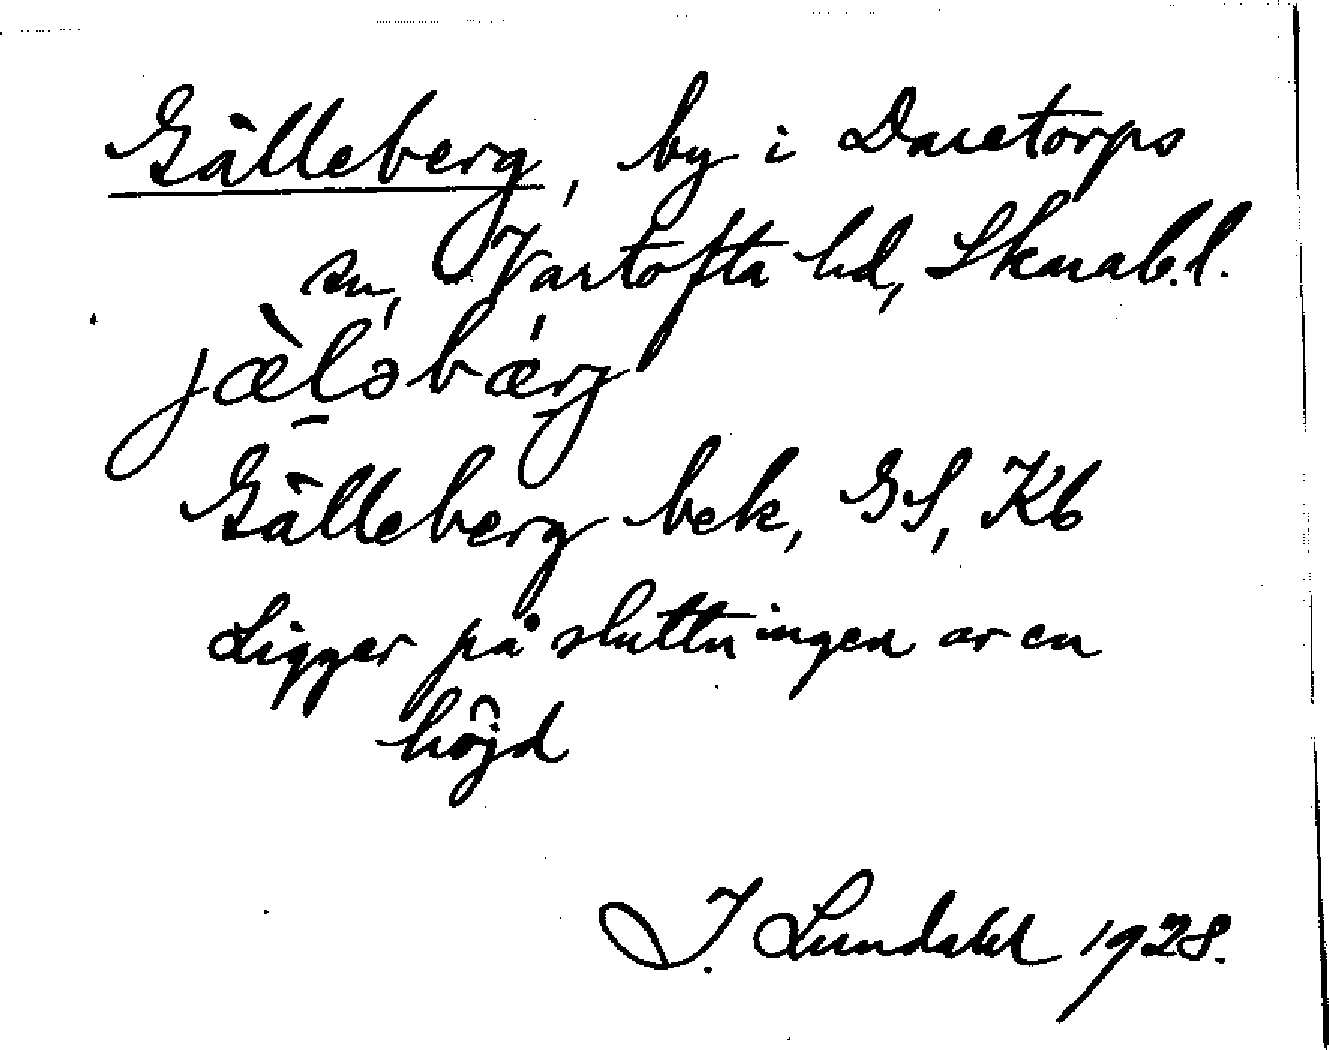 Gälleberg, by i Daretorps
sn, Vartofta hd, Skarab.l.
jæ̀l̠əbæ̀rj
Gälleberg bek, GS, Kb
Ligger på sluttningen av en
höjd
I. Lundahl 1928.